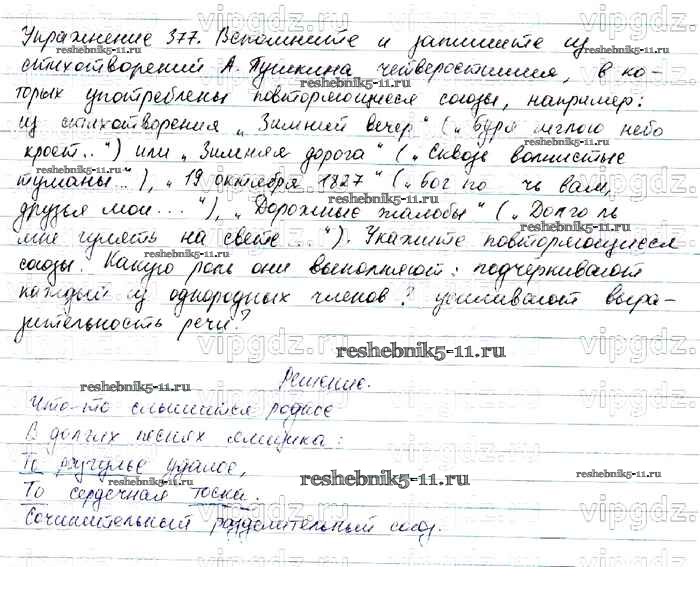 Упражнение 377. Вспомните и запишите из
стихотворений А. Пушкина четверостишия, в ко-
торых употреблены повторяющиеся союзы, например:
из стихотворения „Зимний вечер" („Буря мглою небо
кроет..") или „Зимняя дорога" („Сквозь волнистые
туманы..."), „19 октября 1827" („Бог по чь вам,
друзья мои..."), „Дорожные жалобы" („Долго ль
мне гулять на свете..."). Укажите повторяющиеся
союзы. Какую роль они выполняют: подчеркивают
каждый из однородных членов? усиливают выра-
зительность речи?
Решение.
Что-то слышится родное
В долгих песнях ямщика:
То разгулье удалое,
То сердечная тоска.
Сочинительный разделительный союз.
reshebnik5-11.ru
vipgdz.ru